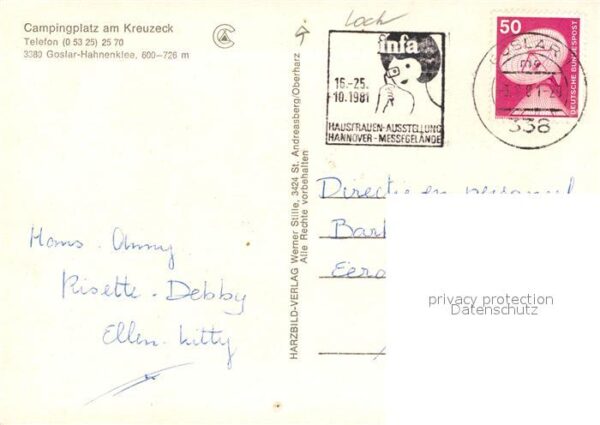 Campingplatz am Kreuzeck
Telefon (0 53 25) 25 70
3380 Goslar-Hahnenklee, 600–726 m
Loch
infa
16.-25.
10.1981
HAUSFRAUEN-AUSSTELLUNG
HANNOVER - MESSEGELÄNDE
50
DEUTSCHE BUNDESPOST
GOSLAR
mg
338
HARZBILD-VERLAG Werner Stille, 3424 St. Andreasberg/Oberharz
Alle Rechte vorbehalten
Directie en personeel
Bar
Eero
Hans - Anny
Risette - Debby
Ellen - Kitty
privacy protection
Datenschutz